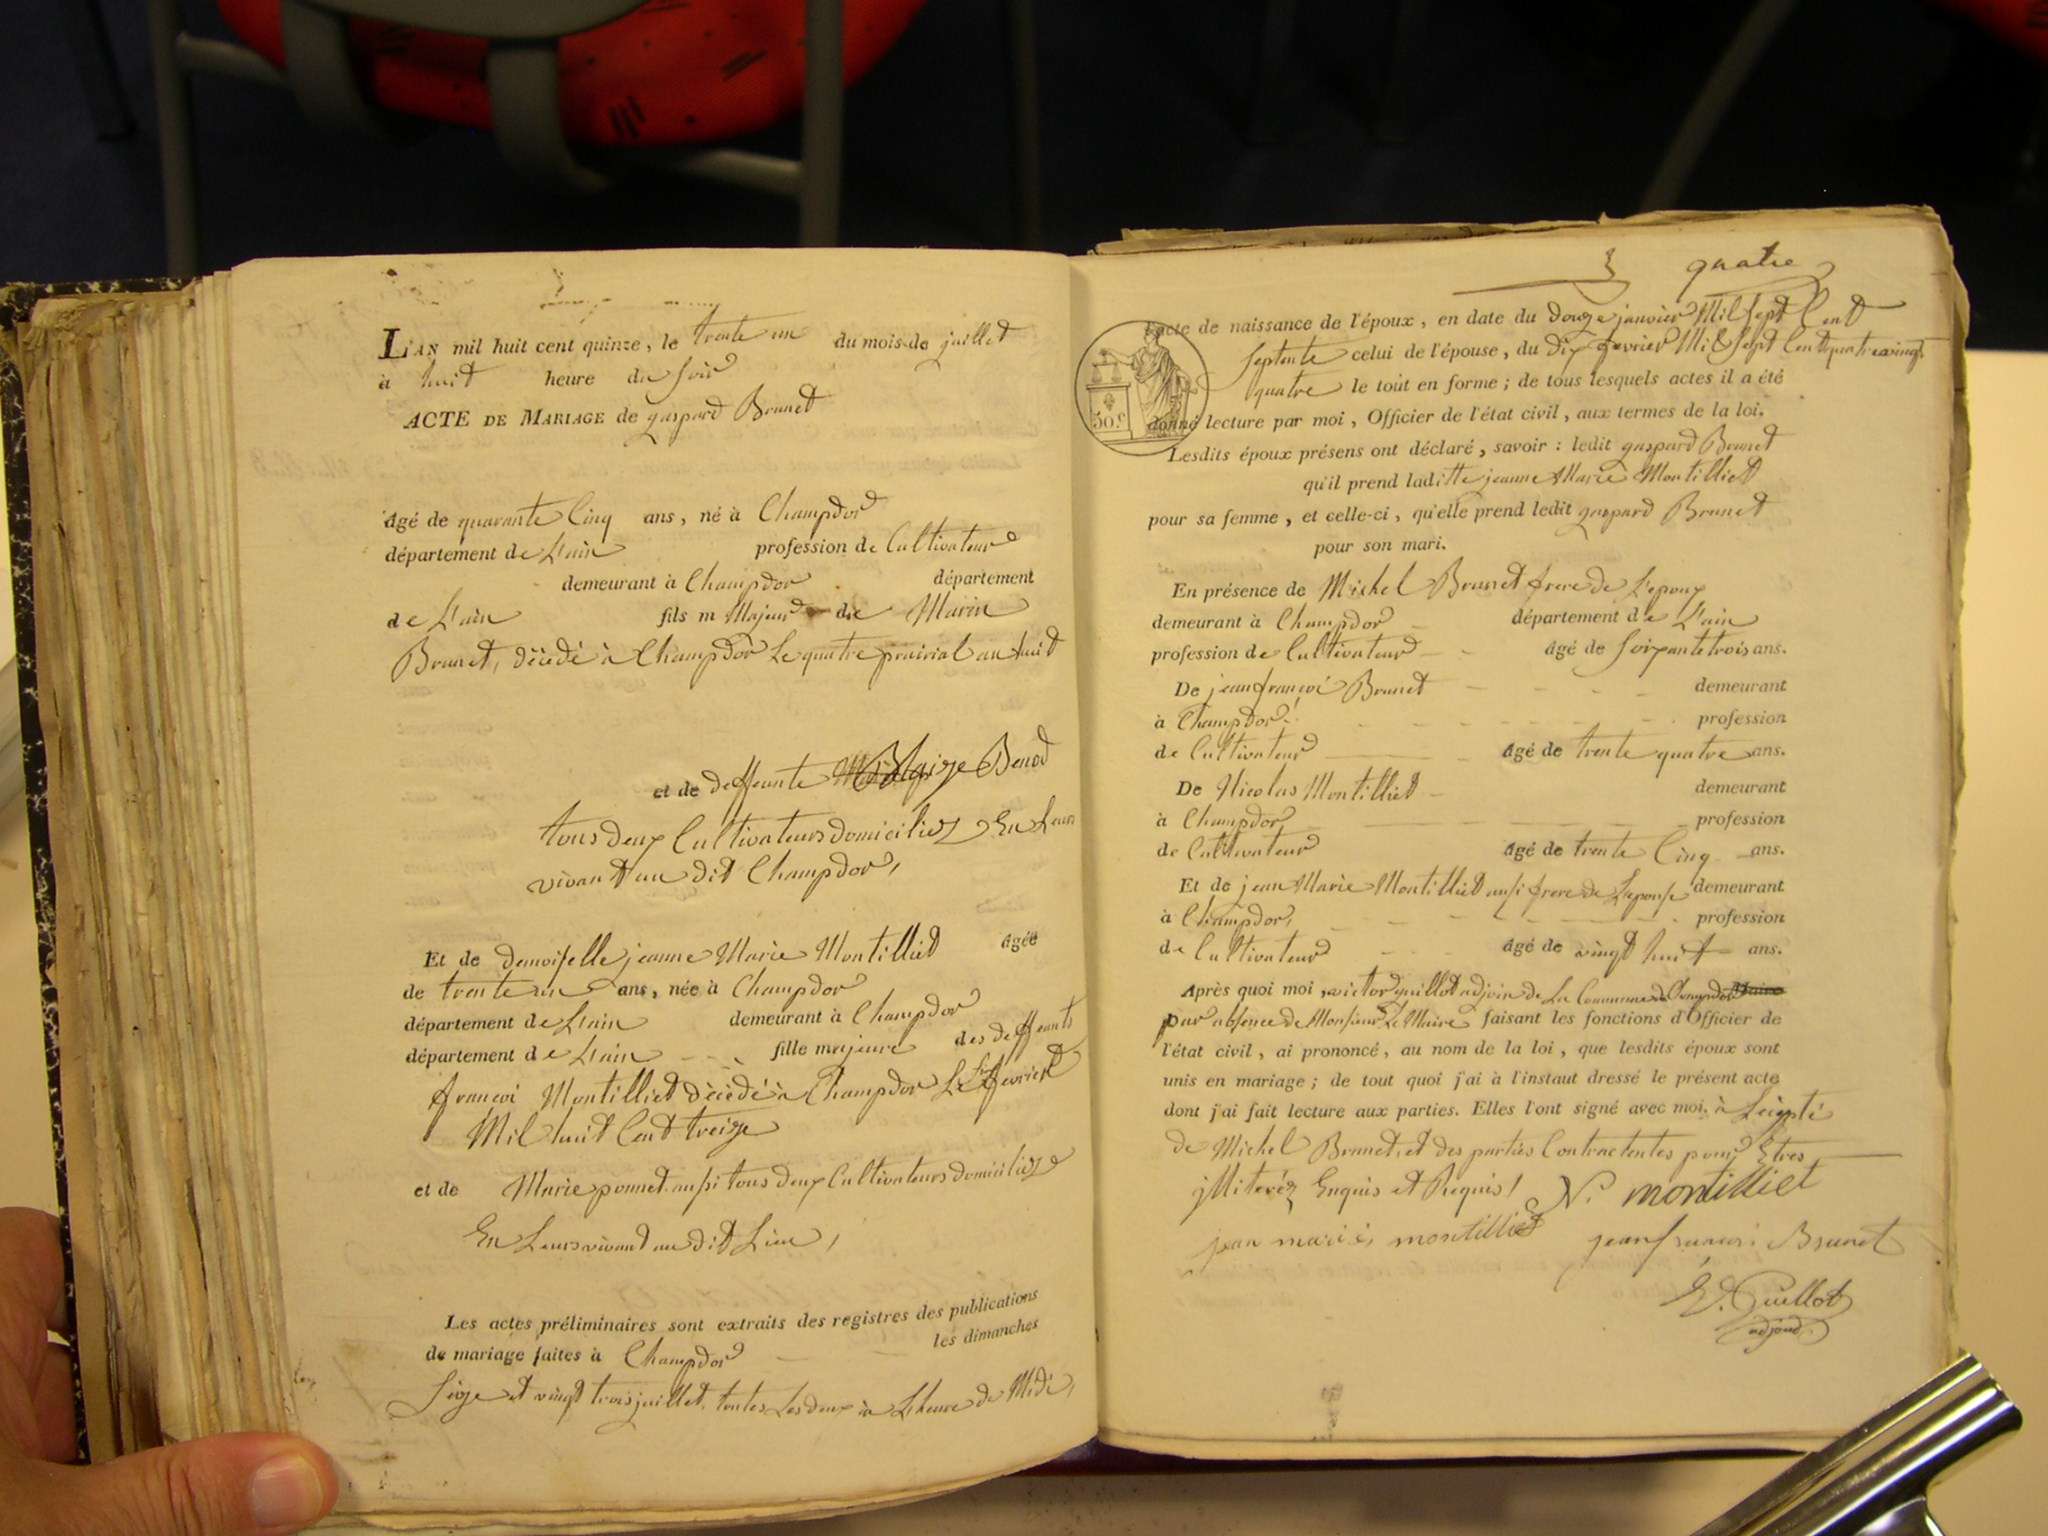 L'AN mil huit cent quinze, le trente un du mois de juillet
à huit heure du soir
ACTE DE MARIAGE de gaspard Brunet
âgé de quarante Cinq ans, né à Champdor
département de L'ain profession de Cultivateur
demeurant à Champdor département
de L'ain fils m Majeur de Marin
Brunet, décédé à Champdor Le quatre prairial an huit
et de deffeunte Blaize Benod
tous deux Cultivateurs domiciliez En Leur
vivant au dit Champdor,
Et de demoiselle jeanne Marie Montilliet âgée
de trente un ans, née à Champdor
département de L'ain demeurant à Champdor
département de L'ain fille majeure des deffeunts
françoi Montilliet décédé à Champdor Le fevrier
Mil huit Cent treize
et de Marie ponnet aussi tous deux Cultivateurs domiciliez
En Leurs vivant au dit Lieu,
Les actes préliminaires sont extraits des registres des publications
de mariage faites à Champdor les dimanches
Seize et vingt trois juillet, toutes Les deux à L'heure de Midi,
quatre
l'acte de naissance de l'époux, en date du douze janvier Mil Sept Cent
septente celui de l'épouse, du dix fevrier Mil Sept Cent quatre vingt
quatre le tout en forme; de tous lesquels actes il a été
donné lecture par moi, Officier de l'état civil, aux termes de la loi.
50 c
Lesdits époux présens ont déclaré, savoir: ledit gaspard Brunet
qu'il prend laditte jeanne Marie Montilliet
pour sa femme, et celle-ci, qu'elle prend ledit gaspard Brunet
pour son mari.
En présence de Michel Brunet frere de L'epoux
demeurant à Champdor département de L'ain
profession de Cultivateur âgé de soixante trois ans.
De jean françoi Brunet demeurant
à Champdor profession
de Cultivateur âgé de trente quatre ans.
De Nicolas Montilliet demeurant
à Champdor profession
de Cultivateur âgé de trente Cinq ans.
Et de jean Marie Montilliet aussi frere de L'epouse demeurant
à Champdor, profession
de Cultivateur âgé de vingt huit ans.
Après quoi moi, victor guillot adjoin de La Commune de Champdor Maire
par absence de Monsieur Le Maire faisant les fonctions d'Officier de
l'état civil, ai prononcé, au nom de la loi, que lesdits époux sont
unis en mariage; de tout quoi j'ai à l'instaut dressé le présent acte
dont j'ai fait lecture aux parties. Elles l'ont signé avec moi, à L'éxepté
de Michel Brunet, et des parties Contractentes pour Etres
jlliteréz Enquis et Requis, N. montilliet
jean marie montilliet jean francoi Brunet
V. Guillot
adjoud.